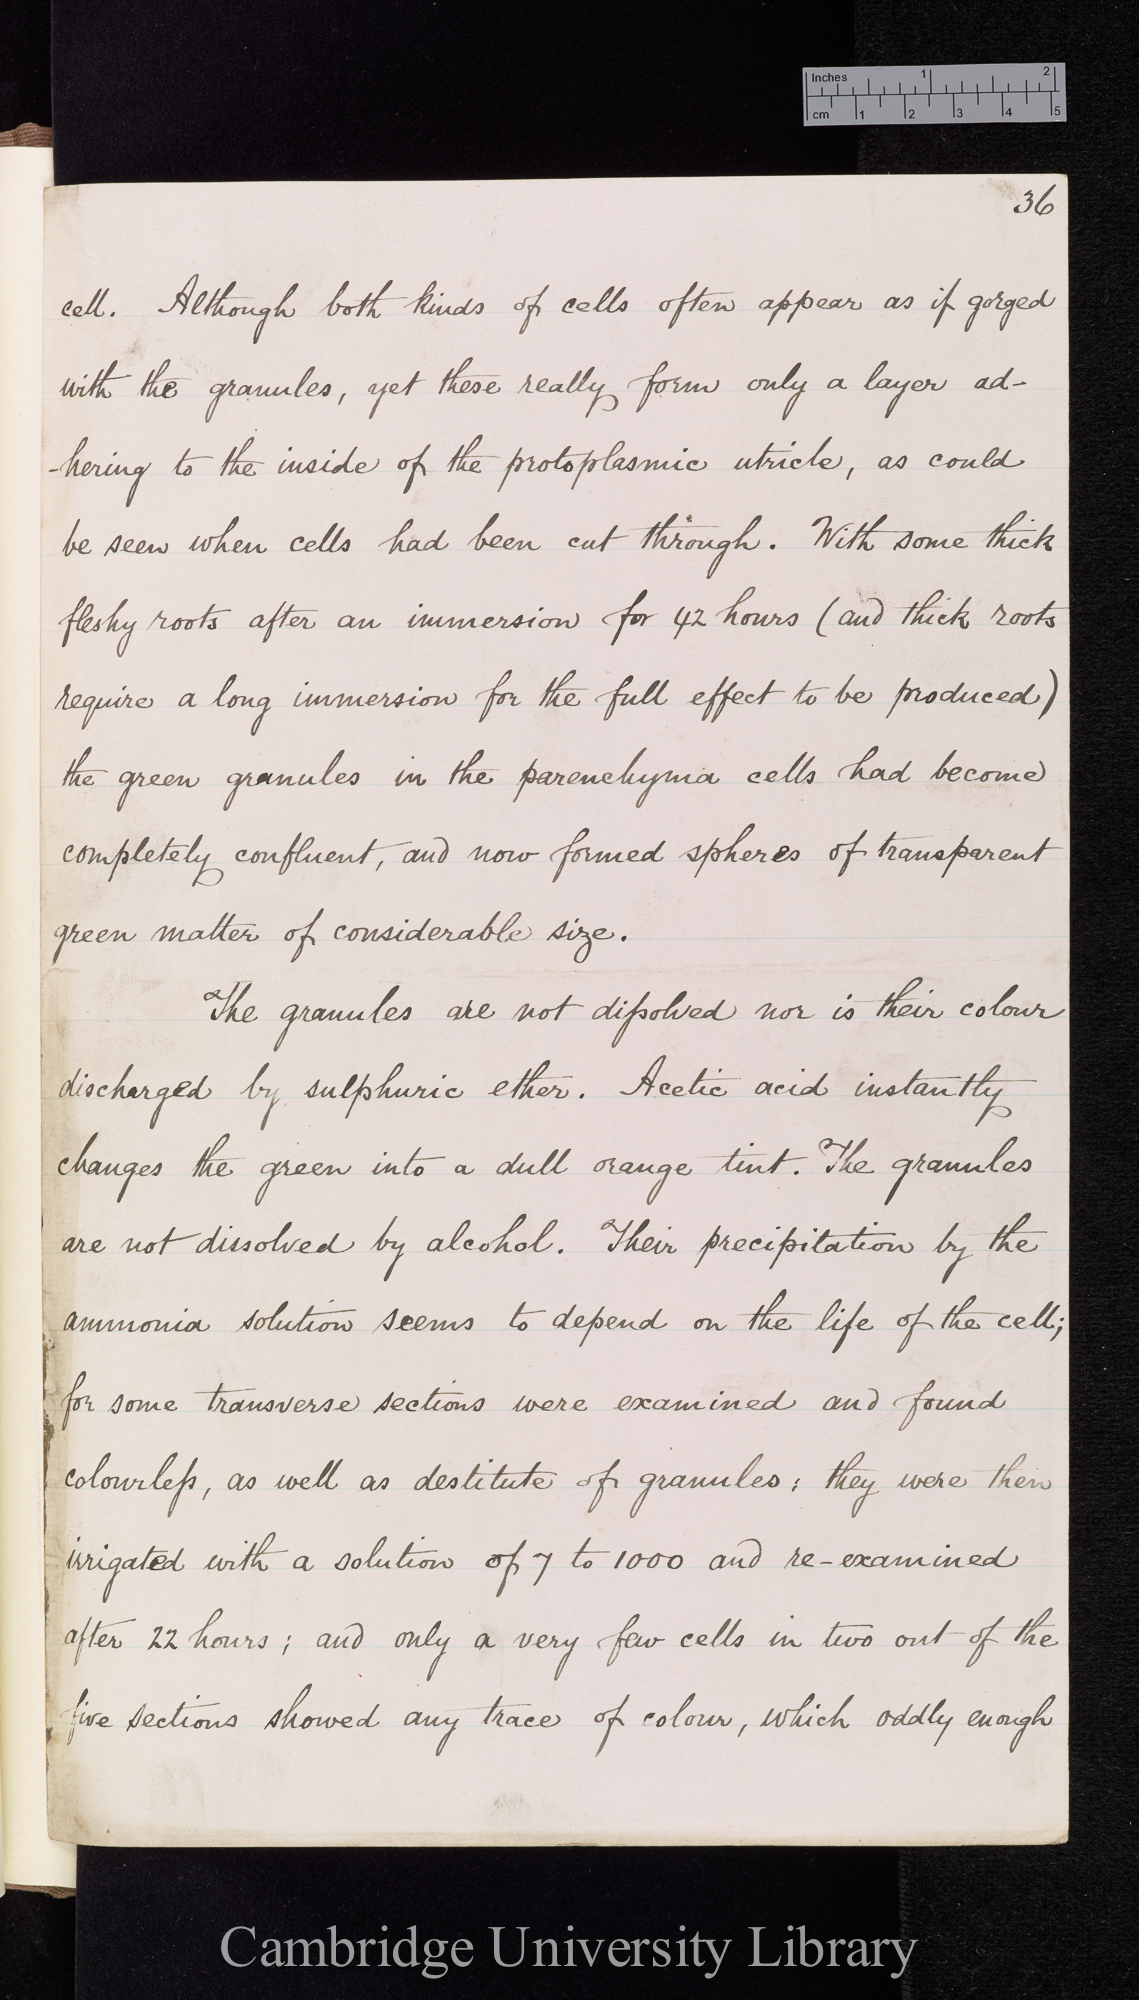 Inches 1 2
cm 1 2 3 4 5
36
cell. Although both kinds of cells often appear as if gorged
with the granules, yet these really form only a layer ad-
-hering to the inside of the protoplasmic utricle, as could
be seen when cells had been cut through. With some thick
fleshy roots after an immersion for 42 hours (and thick roots
require a long immersion for the full effect to be produced)
the green granules in the parenchyma cells had become
completely confluent, and now formed spheres of transparent
green matter of considerable size.
The granules are not diſsolved nor is their colour
discharged by sulphuric ether. Acetic acid instantly
changes the green into a dull orange tint. The granules
are not dissolved by alcohol. Their precipitation by the
ammonia solution seems to depend on the life of the cell;
for some transverse sections were examined and found
colourleſs, as well as destitute of granules; they were then
irrigated with a solution of 7 to 1000 and re-examined
after 22 hours; and only a very few cells in two out of the
five sections showed any trace of colour, which oddly enough
Cambridge University Library